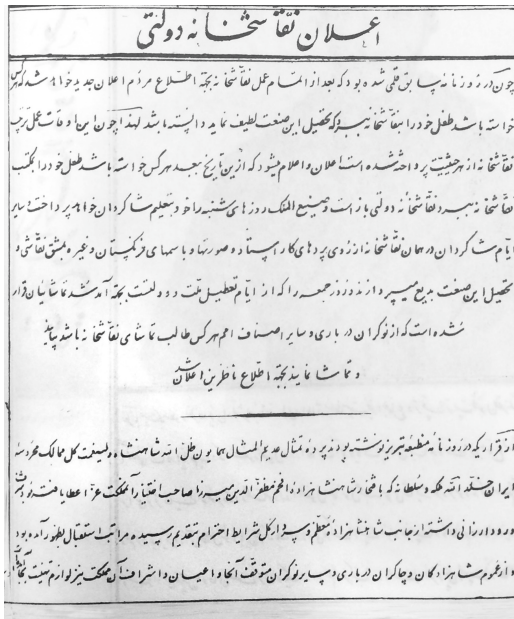 اعلان نقاشخانه دولتی
چون در روزنامه سابق قلمی شده بود که بعد از اتمام عمل نقاشخانه بجهة اطلاع مردم اعلان جدید خواهد شد که هرکس
خواسته باشد طفل خود را بنقاشخانه سپرد که تحصیل این صنعت لطیف نماید دانسته باشد لهذا چون این اوقات عمل ترتیب
نقاشخانه از هر حیثیت پرداخته شده است اعلان و اعلام میشود که ازین تاریخ ببعد هرکس خواسته باشد طفل خود را بمکتب
نقاشخانه سپرد نقاشخانه دولتی باز است و صنیع الملک روزهای شنبه را خود بتعلیم شاگردان خواهد پرداخت سایر
ایام شاگردان در همان نقاشخانه از روی پرده‌های کار استاد و صورتها و باسمهای فرنگستان و غیره بمشق نقاشی و
تحصیل این صنعت بدیع میپردازند و روز جمعه را که از ایام تعطیل ملت و دولت است بجهة آمد شد تماشائیان قرار
شده است که از نوکران درباری و سایر اصناف امم هرکس طالب تماشای نقاشخانه باشد بیایند
و تماشا نمایند بجهة اطلاع ناظرین اعلان شد
از قراریکه در روزنامه منطبعه تبریز نوشته بودند پرده تمثال عدیم المثال همایون ظل الله شاهنشاه ولینعمت کل ممالک محروسه
ایران خلد الله ملکه و سلطانه که بافتخار شاهنشاهزاده افخم مظفرالدین میرزا صاحب اختیار آن مملکت عز اعطا یافته بود
ورود ارزانی داشته از جانب شاهنشاهزاده معظم و سردار کل شرایط احترام بتقدیم رسیده مراتب استقبال بظهور آمده بود
و از عموم شاهزادگان و چاکران درباری و سایر نوکران متوقف آنجا و اعیان و اشراف آن مملکت نیز لوازم تهنیت